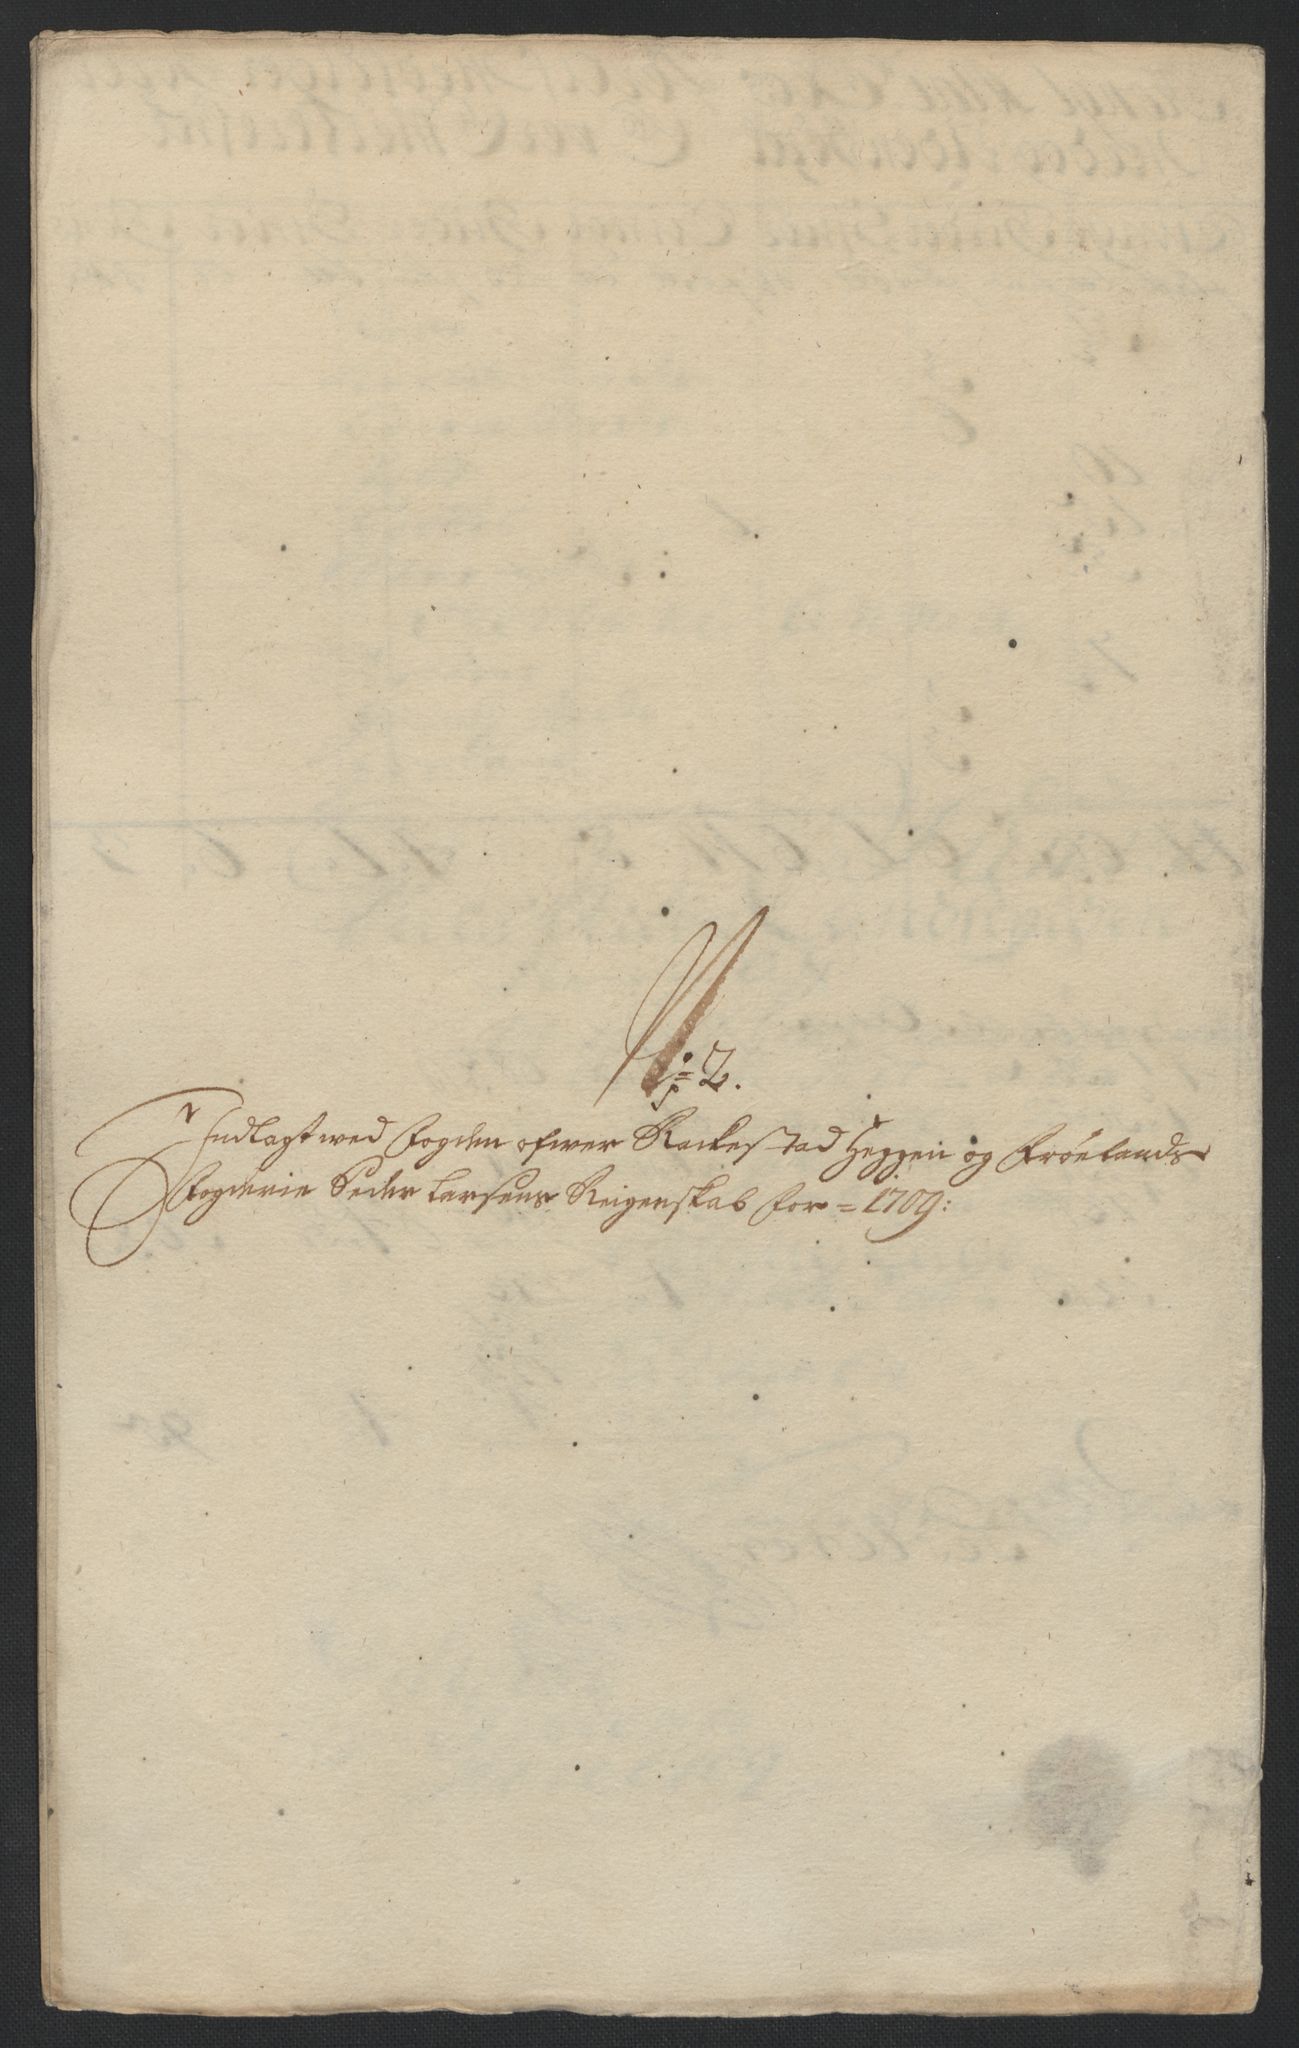 No 2.
Indlagt wed fogden ofwer Rackestad Heggen og Frøelands
fogderie Peder Larsens Reigenskab for = 1709: